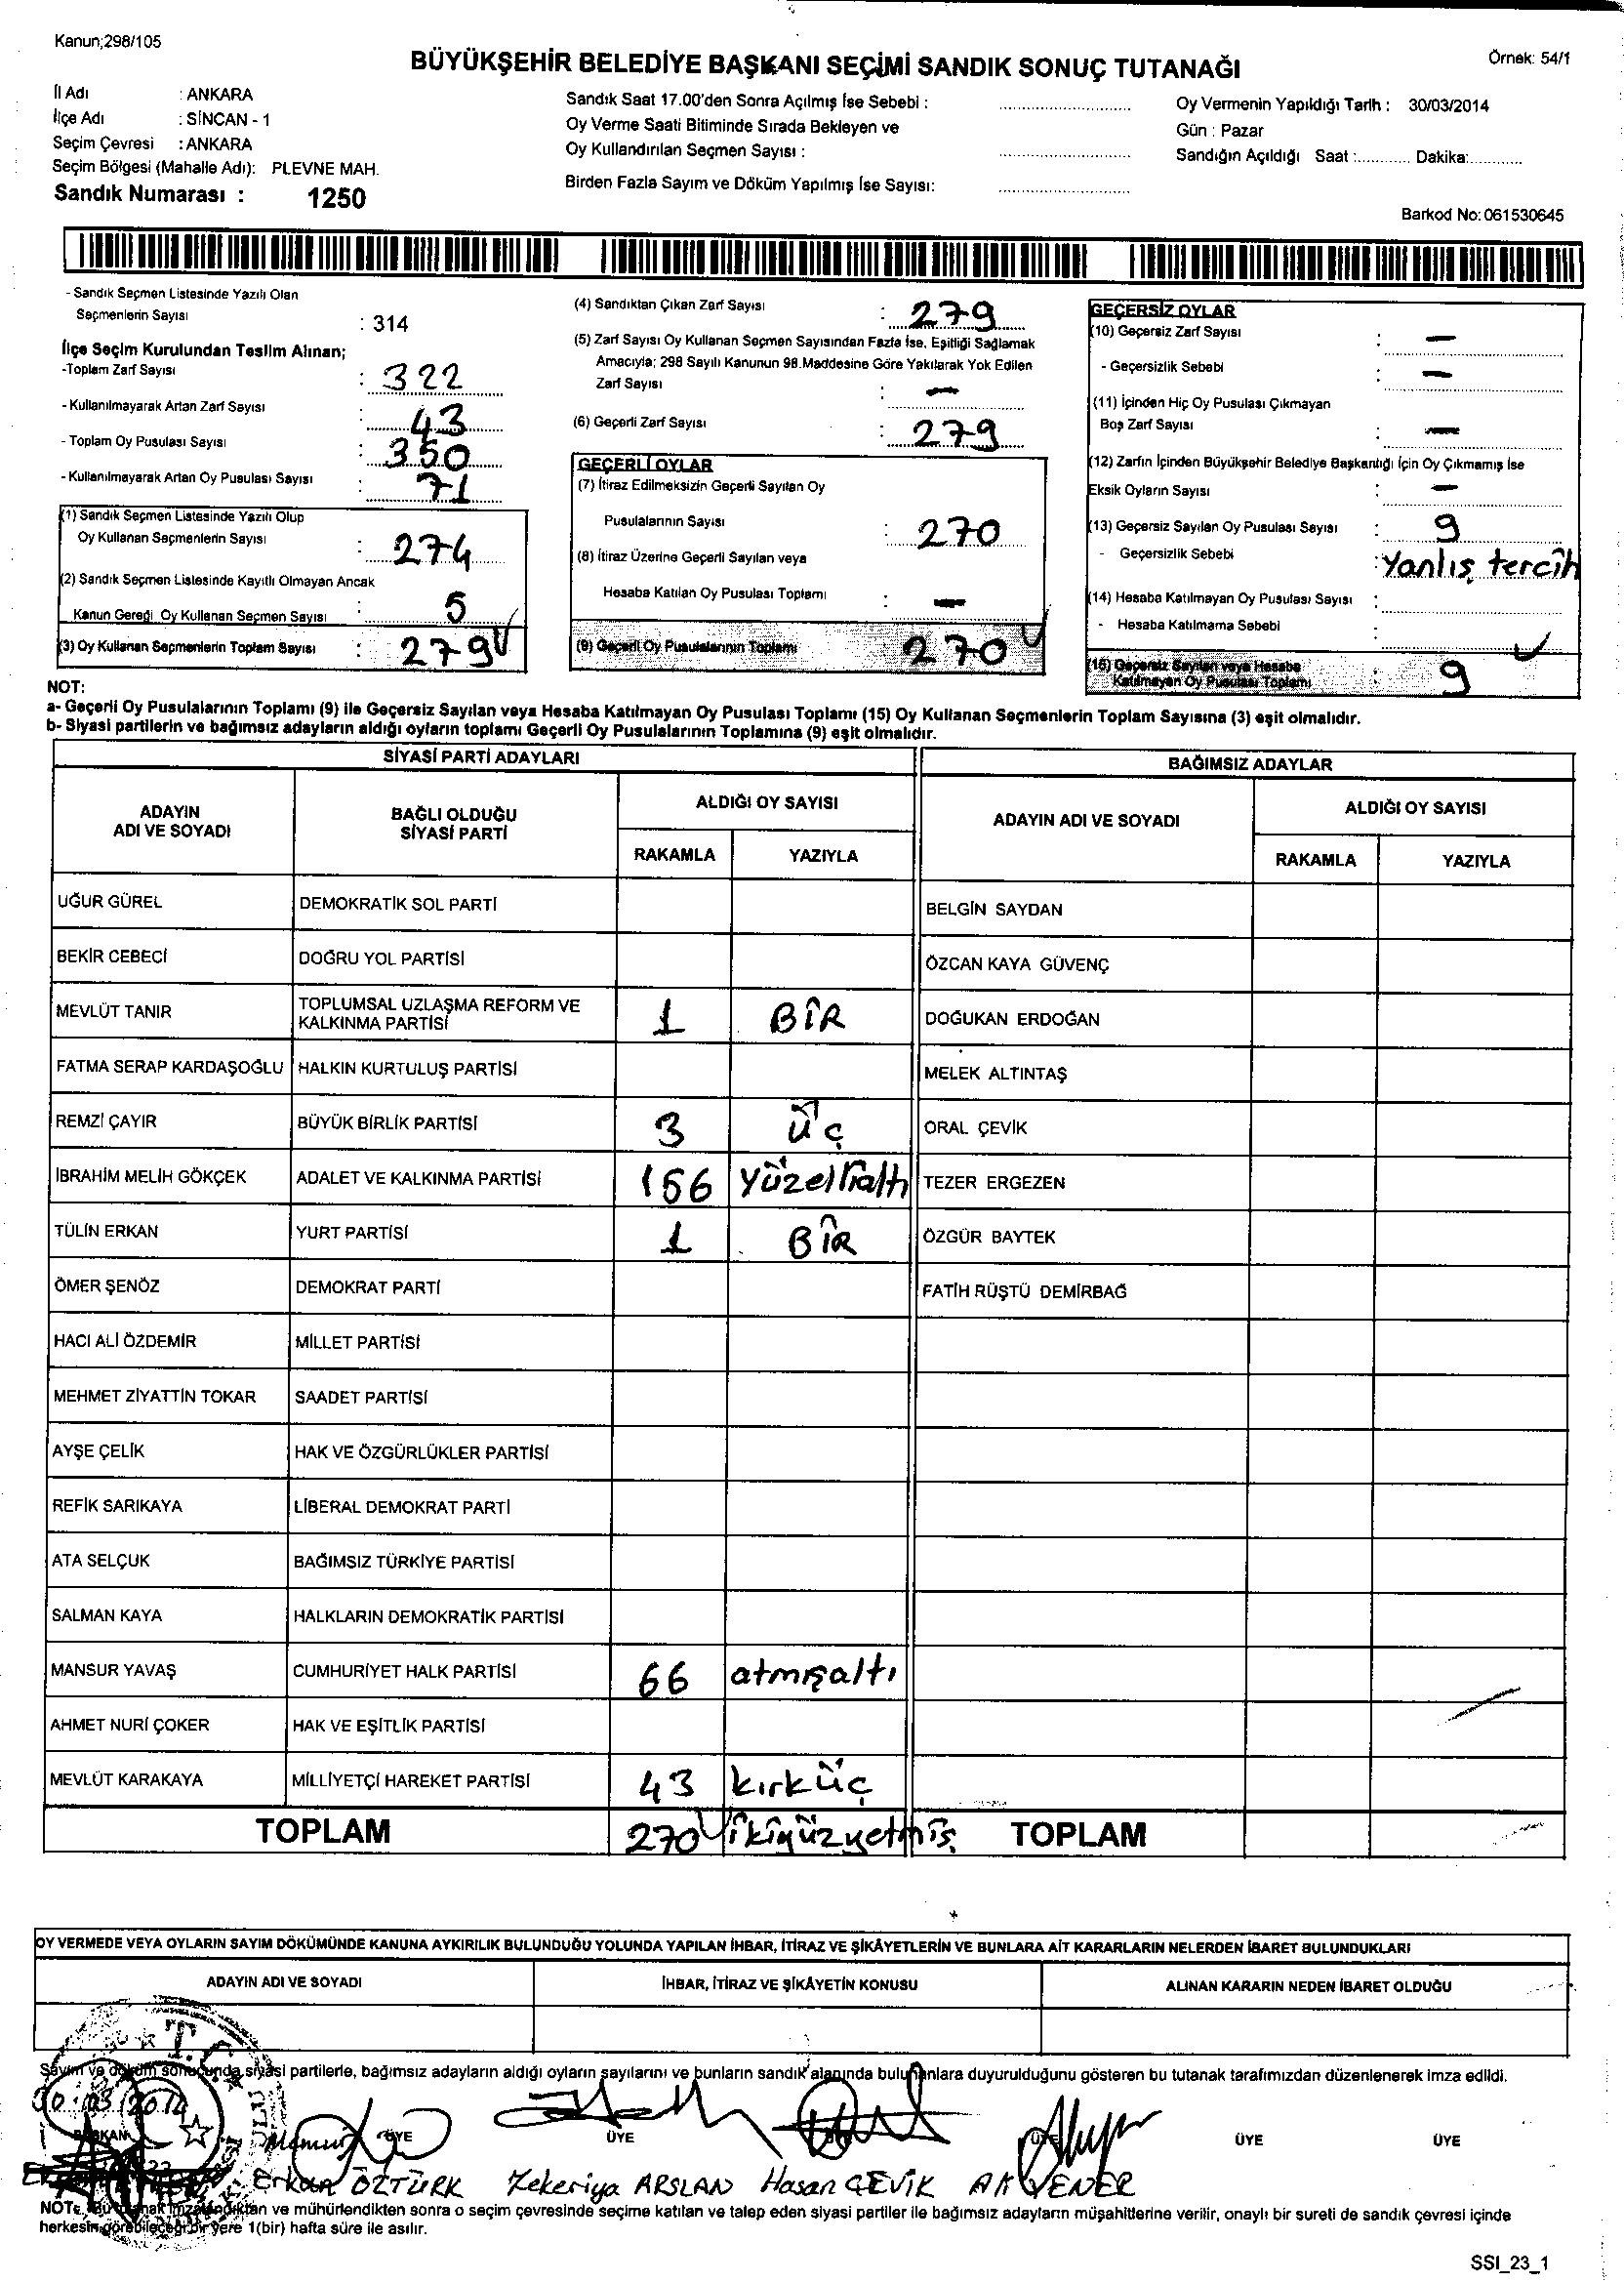 Kanun;298/105
BÜYÜKŞEHİR BELEDİYE BAŞKANI SEÇİMİ SANDIK SONUÇ TUTANAĞI
Örnek: 54/1
İl Adı : ANKARA
İlçe Adı : SİNCAN - 1
Seçim Çevresi : ANKARA
Seçim Bölgesi (Mahalle Adı): PLEVNE MAH.
Sandık Numarası : 1250
Sandık Saat 17.00'den Sonra Açılmış İse Sebebi :
Oy Verme Saati Bitiminde Sırada Bekleyen ve
Oy Kullandırılan Seçmen Sayısı :
Birden Fazla Sayım ve Döküm Yapılmış İse Sayısı:
Oy Vermenin Yapıldığı Tarih : 30/03/2014
Gün : Pazar
Sandığın Açıldığı Saat :............ Dakika:............
Barkod No: 061530645
- Sandık Seçmen Listesinde Yazılı Olan
Seçmenlerin Sayısı : 314
İlçe Seçim Kurulundan Teslim Alınan;
-Toplam Zarf Sayısı : 322
- Kullanılmayarak Artan Zarf Sayısı : 43
- Toplam Oy Pusulası Sayısı : 350
- Kullanılmayarak Artan Oy Pusulası Sayısı : 71
(1) Sandık Seçmen Listesinde Yazılı Olup
Oy Kullanan Seçmenlerin Sayısı : 274
(2) Sandık Seçmen Listesinde Kayıtlı Olmayan Ancak
Kanun Gereği Oy Kullanan Seçmen Sayısı : 5
(3) Oy Kullanan Seçmenlerin Toplam Sayısı : 279
(4) Sandıktan Çıkan Zarf Sayısı : 279
(5) Zarf Sayısı Oy Kullanan Seçmen Sayısından Fazla İse, Eşitliği Sağlamak
Amacıyla; 298 Sayılı Kanunun 98.Maddesine Göre Yakılarak Yok Edilen
Zarf Sayısı : —
(6) Geçerli Zarf Sayısı : 279
GEÇERLİ OYLAR
(7) İtiraz Edilmeksizin Geçerli Sayılan Oy
Pusulalarının Sayısı : 270
(8) İtiraz Üzerine Geçerli Sayılan veya
Hesaba Katılan Oy Pusulası Toplamı : —
(9) Geçerli Oy Pusulalarının Toplamı 270
GEÇERSİZ OYLAR
(10) Geçersiz Zarf Sayısı : —
- Geçersizlik Sebebi : —
(11) İçinden Hiç Oy Pusulası Çıkmayan
Boş Zarf Sayısı : —
(12) Zarfın İçinden Büyükşehir Belediye Başkanlığı İçin Oy Çıkmamış İse
Eksik Oyların Sayısı : —
(13) Geçersiz Sayılan Oy Pusulası Sayısı : 9
- Geçersizlik Sebebi : Yanlış tercih
(14) Hesaba Katılmayan Oy Pusulası Sayısı :
- Hesaba Katılmama Sebebi :
(15) Geçersiz Sayılan veya Hesaba
Katılmayan Oy Pusulası Toplamı : 9
NOT:
a- Geçerli Oy Pusulalarının Toplamı (9) ile Geçersiz Sayılan veya Hesaba Katılmayan Oy Pusulası Toplamı (15) Oy Kullanan Seçmenlerin Toplam Sayısına (3) eşit olmalıdır.
b- Siyasi partilerin ve bağımsız adayların aldığı oyların toplamı Geçerli Oy Pusulalarının Toplamına (9) eşit olmalıdır.
SİYASİ PARTİ ADAYLARI
BAĞIMSIZ ADAYLAR
ADAYIN ADI VE SOYADI
BAĞLI OLDUĞU SİYASİ PARTİ
ALDIĞI OY SAYISI
RAKAMLA YAZIYLA
ADAYIN ADI VE SOYADI
ALDIĞI OY SAYISI
RAKAMLA YAZIYLA
UĞUR GÜREL DEMOKRATİK SOL PARTİ BELGİN SAYDAN
BEKİR CEBECİ DOĞRU YOL PARTİSİ ÖZCAN KAYA GÜVENÇ
MEVLÜT TANIR TOPLUMSAL UZLAŞMA REFORM VE KALKINMA PARTİSİ 1 BİR DOĞUKAN ERDOĞAN
FATMA SERAP KARDAŞOĞLU HALKIN KURTULUŞ PARTİSİ MELEK ALTINTAŞ
REMZİ ÇAYIR BÜYÜK BİRLİK PARTİSİ 3 üç ORAL ÇEVİK
İBRAHİM MELİH GÖKÇEK ADALET VE KALKINMA PARTİSİ 156 yüzellialtı TEZER ERGEZEN
TÜLİN ERKAN YURT PARTİSİ 1 BİR ÖZGÜR BAYTEK
ÖMER ŞENÖZ DEMOKRAT PARTİ FATİH RÜŞTÜ DEMİRBAĞ
HACI ALİ ÖZDEMİR MİLLET PARTİSİ
MEHMET ZİYATTİN TOKAR SAADET PARTİSİ
AYŞE ÇELİK HAK VE ÖZGÜRLÜKLER PARTİSİ
REFİK SARIKAYA LİBERAL DEMOKRAT PARTİ
ATA SELÇUK BAĞIMSIZ TÜRKİYE PARTİSİ
SALMAN KAYA HALKLARIN DEMOKRATİK PARTİSİ
MANSUR YAVAŞ CUMHURİYET HALK PARTİSİ 66 atmışaltı
AHMET NURİ ÇOKER HAK VE EŞİTLİK PARTİSİ
MEVLÜT KARAKAYA MİLLİYETÇİ HAREKET PARTİSİ 43 kırküç
TOPLAM 270 ikiyüzyetmiş TOPLAM
OY VERMEDE VEYA OYLARIN SAYIM DÖKÜMÜNDE KANUNA AYKIRILIK BULUNDUĞU YOLUNDA YAPILAN İHBAR, İTİRAZ VE ŞİKÂYETLERİN VE BUNLARA AİT KARARLARIN NELERDEN İBARET BULUNDUKLARI
ADAYIN ADI VE SOYADI İHBAR, İTİRAZ VE ŞİKÂYETİN KONUSU ALINAN KARARIN NEDEN İBARET OLDUĞU
T.C.
Sayım ve döküm sonucunda siyasi partilerle, bağımsız adayların aldığı oyların sayılarını ve bunların sandık alanında bulunanlara duyurulduğunu gösteren bu tutanak tarafımızdan düzenlenerek imza edildi.
30.03/2014
BAŞKAN Memur ÜYE ÜYE ÜYE ÜYE ÜYE
Erkan ÖZTÜRK Zekeriya ARSLAN Hasan ÇEVİK
NOT: Bu tutanak imzalandıktan ve mühürlendikten sonra o seçim çevresinde seçime katılan ve talep eden siyasi partiler ile bağımsız adayların müşahitlerine verilir, onaylı bir sureti de sandık çevresi içinde
herkesin görebileceği bir yere 1(bir) hafta süre ile asılır.
SSI_23_1